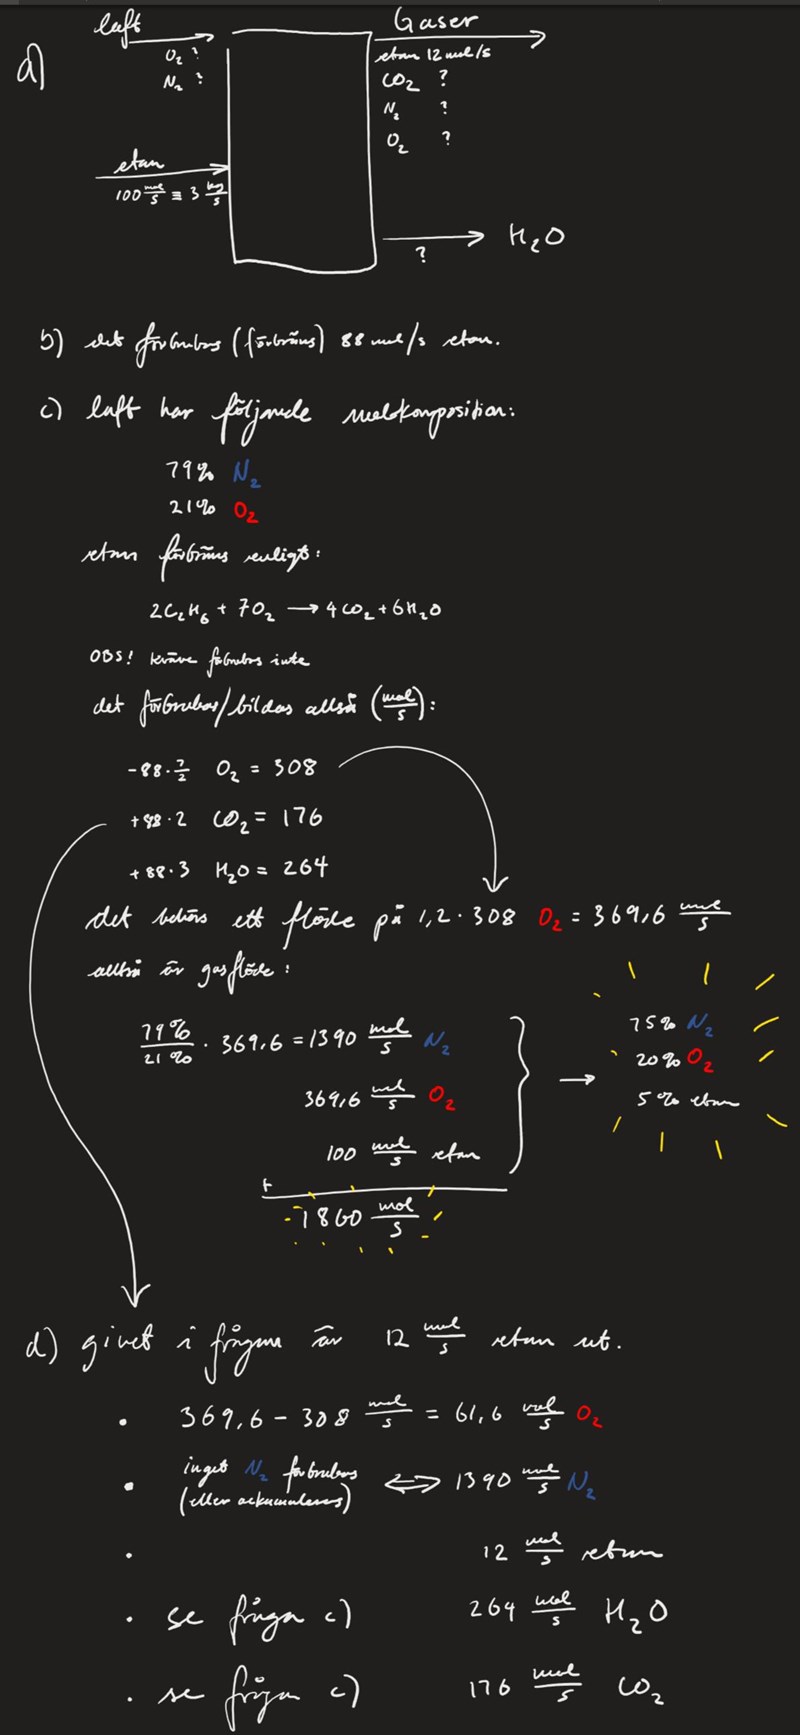 a)
luft
O₂ ?
N₂ ?
etan
100 mol/s ≡ 3 kg/s
Gaser
etan 12 mol/s
CO₂ ?
N₂ ?
O₂ ?
? H₂O
b) det förbrukas (förbräns) 88 mol/s etan.
c) luft har följande molkomposition:
79% N₂
21% O₂
etan förbräns enligt:
2C₂H₆ + 7O₂ → 4CO₂ + 6H₂O
OBS! kväve förbrukas inte
det förbrukas/bildas alltså (mol/s):
-88·7/2 O₂ = 308
+88·2 CO₂ = 176
+88·3 H₂O = 264
det behövs ett flöde på 1,2 · 308 O₂ = 369,6 mol/s
alltså är gasflöde:
79%/21% · 369,6 = 1390 mol/s N₂
369,6 mol/s O₂
100 mol/s etan
+
1860 mol/s
→
75% N₂
20% O₂
5% etan
d) givet i frågan är 12 mol/s etan ut.
• 369,6 - 308 mol/s = 61,6 mol/s O₂
• inget N₂ förbrukas
(eller ackumuleras) ⟺ 1390 mol/s N₂
• 12 mol/s etan
• se fråga c) 264 mol/s H₂O
• se fråga c) 176 mol/s CO₂